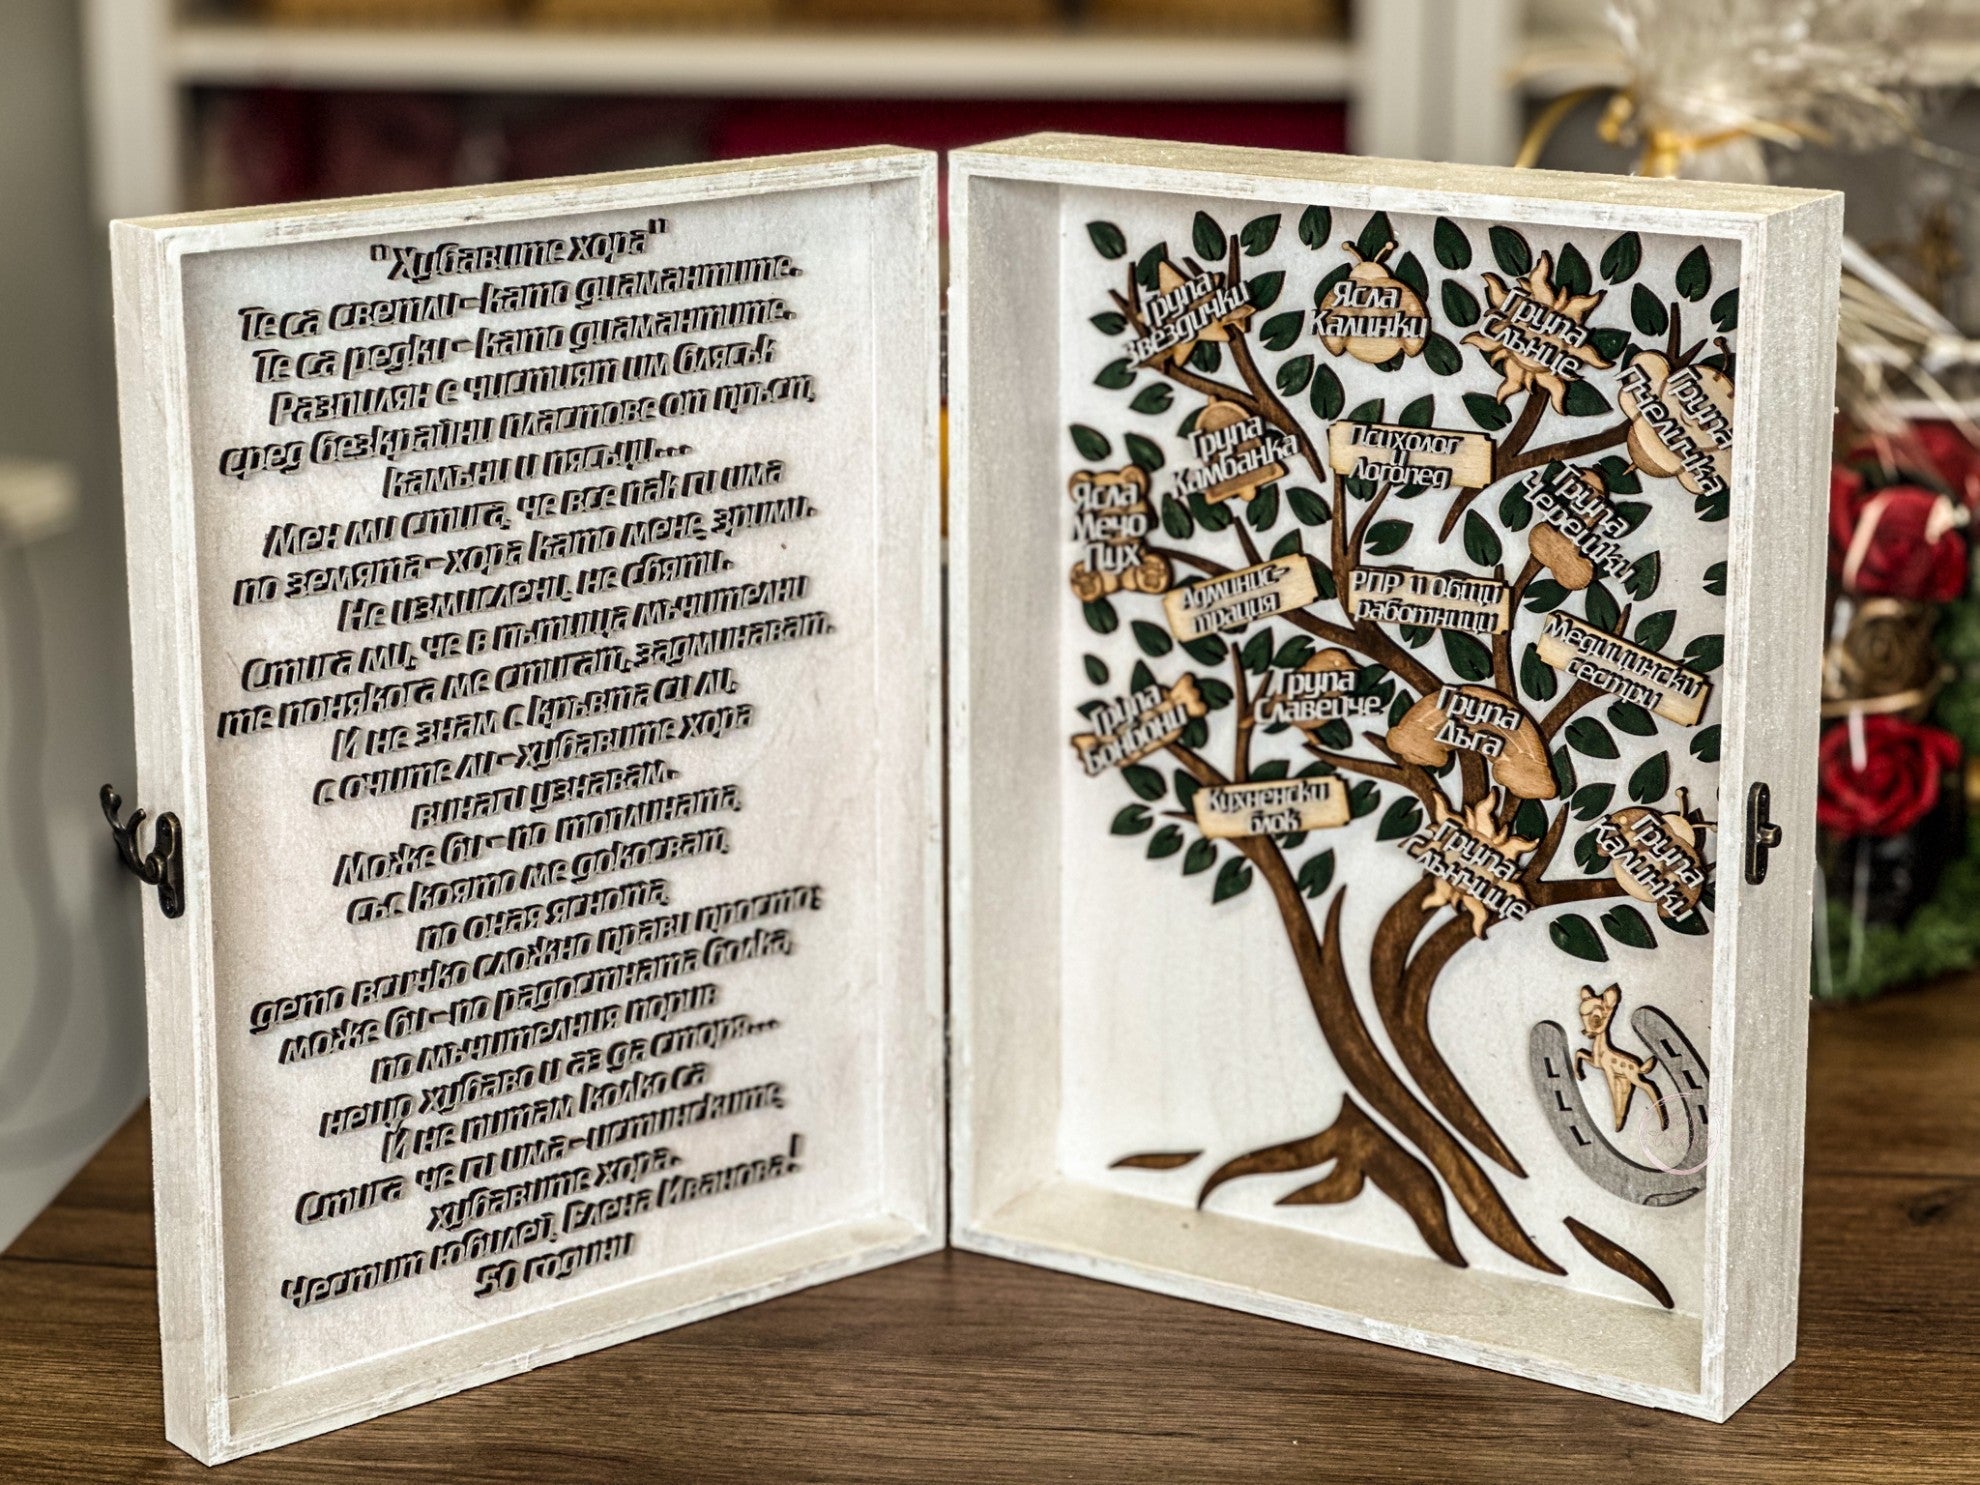 "Хубавите хора"
Те са светли - като диамантите.
Те са редки - като диамантите.
Разпилян е чистият им блясък
сред безкрайни пластове от пръст,
камъни и пясъци...
Мен ми стига, че все пак ги има
по земята - хора като мене, зрими.
Не измислени, не святи.
Стига ми, че в пътища мъчителни
те понякога ме стигат, задминават.
И не знам с кръвта си ли,
с очите ли - хубавите хора
винаги узнавам.
Може би - по топлината,
със която ме докосват,
по оная яснота,
дето всичко сложно прави просто;
може би - по радостната болка,
по мъчителния порив
нещо хубаво и аз да сторя...
И не питам колко са
Стига че ги има - истинските,
хубавите хора.
Честит юбилей, Елена Иванова!
50 години
Група
Звездички
Ясла
Калинки
Група
Слънце
Група
Пчеличка
Група
Камбанка
Психолог
и
Логопед
Група
Черешки
Ясла
Мечо
Пух
Админис-
трация
РПР и Общи
работници
Медицински
сестри
Група
Бонбони
Група
Славейче
Група
Дъга
Кухненски
блок
Група
Слънчице
Група
Калинки